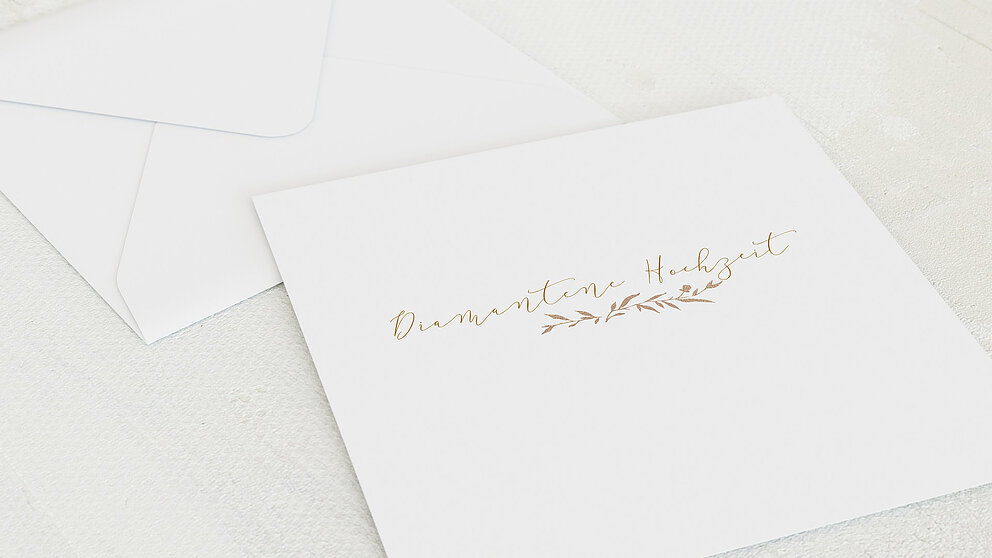 Diamantene Hochzeit